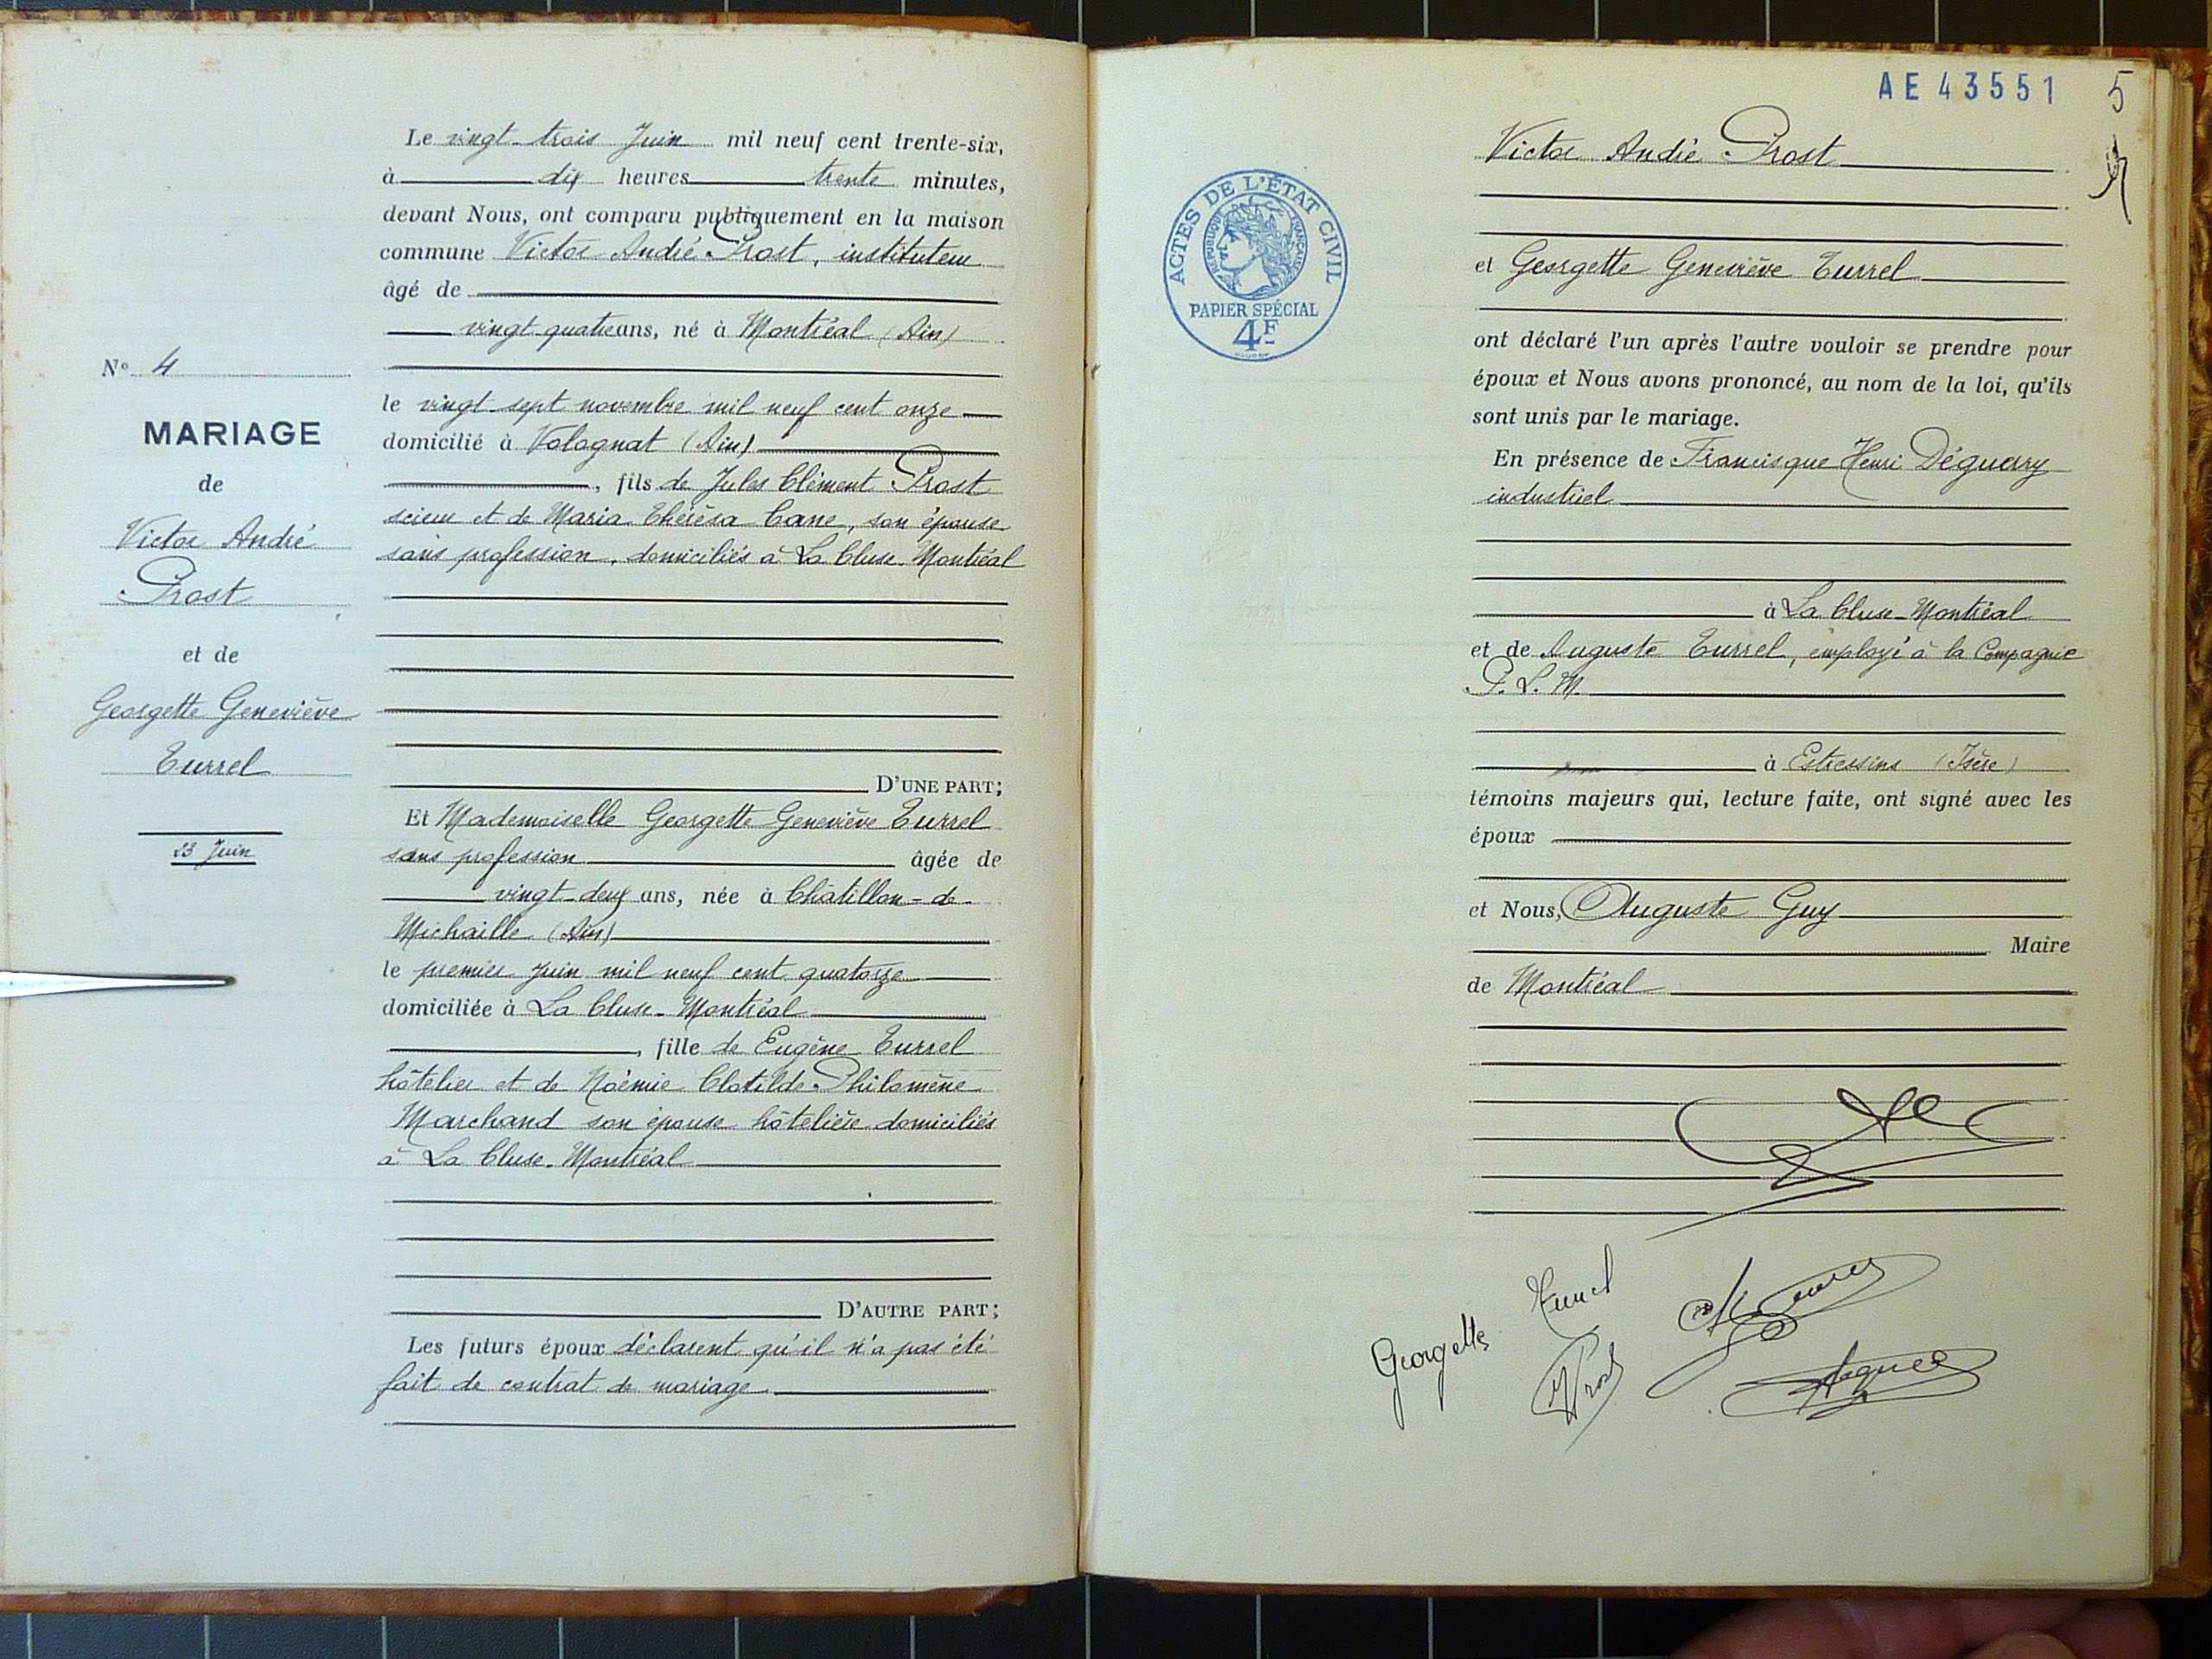 Le vingt-trois Juin mil neuf cent trente-six,
à dix heures trente minutes,
devant Nous, ont comparu publiquement en la maison
commune Victor André Prost, instituteur
âgé de
vingt quatre ans, né à Montréal (Ain)
le vingt-sept novembre mil neuf cent onze
domicilié à Volognat (Ain)
, fils de Jules Clément Prost
scieur et de Maria Thérèsa Cane, son épouse
sans profession, domiciliés à La Cluse-Montréal
D'UNE PART;
Et Mademoiselle Georgette Geneviève Turrel
sans profession âgée de
vingt-deux ans, née à Châtillon-de-
Michaille (Ain)
le premier Juin mil neuf cent quatorze
domiciliée à La Cluse-Montréal
, fille de Eugène Turrel
hôtelier et de Noémie Clotilde Philomène
Marchand son épouse hôtelière domiciliés
à La Cluse-Montréal
D'AUTRE PART;
Les futurs époux déclarent qu'il n'a pas été
fait de contrat de mariage
N° 4
MARIAGE
de
Victor André
Prost
et de
Georgette Geneviève
Turrel
23 Juin
AE 43551
5
ACTES DE L'ÉTAT CIVIL
RÉPUBLIQUE FRANÇAISE
PAPIER SPÉCIAL
4F
Victor André Prost
et Georgette Geneviève Turrel
ont déclaré l'un après l'autre vouloir se prendre pour
époux et Nous avons prononcé, au nom de la loi, qu'ils
sont unis par le mariage.
En présence de Francisque Henri Déguerry
industriel
à La Cluse-Montréal
et de Auguste Turrel, employé à la Compagnie
P. L. M.
à Estressins (Isère)
témoins majeurs qui, lecture faite, ont signé avec les
époux
et Nous, Auguste Guy
Maire
de Montréal
Georgette Turrel
Prost